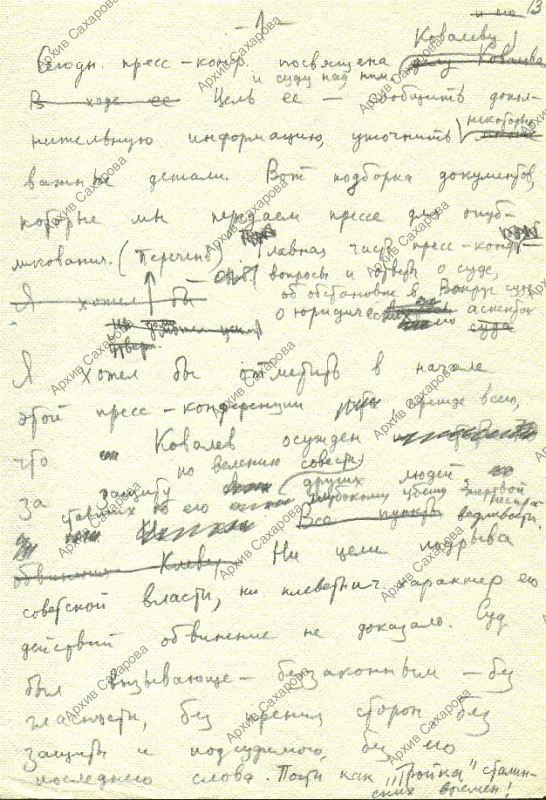 - 1 -
и его 13
Ковалеву
Сегодн. пресс-конф. посвящена делу Ковалева
и суду над ним.
В ходе ее Цель ее — сообщить допол-
нительную информацию, уточнить некоторые
важные детали. Вот подборка документов,
которые мы передаем прессе для опуб-
ликования. (Перечень). Главная часть пресс-конф –
ответы вопросы и ответы о суде,
Я хотел бы об обстановке вокруг суда,
о юридических аспектах
суда
Я хотел бы отметить в начале
этой пресс-конференции прежде всего,
что Ковалев осужден
по велению совести
за защиту других людей
ставших по его глубокому убеждению жертвой несправедливости.
Все пункты
обвинения Клевету Ни цели подрыва
советской власти, ни клеветнич. характер его
действий обвинение не доказало. Суд
был вызывающе-беззаконным – без
гласности, без прения сторон без
защиты и подсудимого, без его
последнего слова. Почти как "Тройка" сталин-
ских времен!
Архив Сахарова